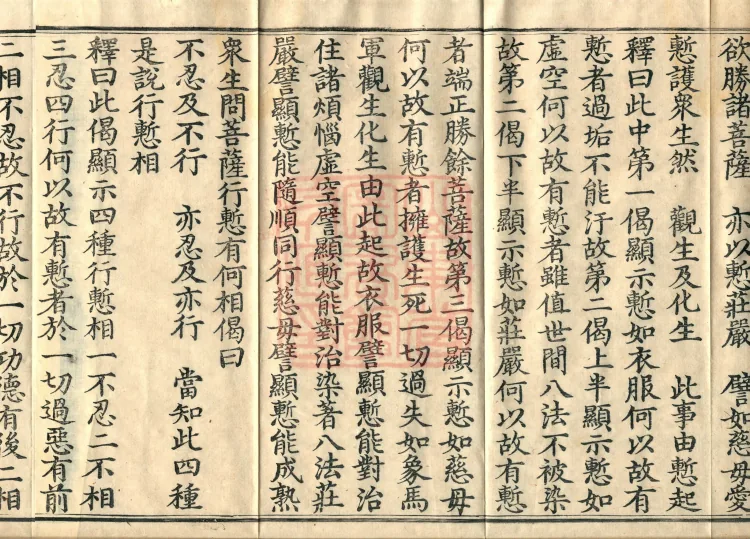 欲勝諸菩薩　亦以慙莊嚴　譬如慈母愛
慙護衆生然　觀生及化生　此事由慙起
釋曰此中第一偈顯示慙如衣服何以故有
慙者過垢不能汙故第二偈上半顯示慙如
虛空何以故有慙者雖值世間八法不被染
故第二偈下半顯示慙如莊嚴何以故有慙
者端正勝餘菩薩故第三偈顯示慙如慈母
何以故有慙者擁護生死一切過失如象馬
軍觀生化生由此起故衣服譬顯慙能對治
住諸煩惱虛空譬顯慙能對治染著八法莊
嚴譬顯慙能隨順同行慈母譬顯慙能成熟
衆生問菩薩行慙有何相偈曰
不忍及不行　亦忍及亦行　當知此四種
是說行慙相
釋曰此偈顯示四種行慙相一不忍二不相
三忍四行何以故有慙者於一切過惡有前
二相不忍故不行故於一切功德有後二相